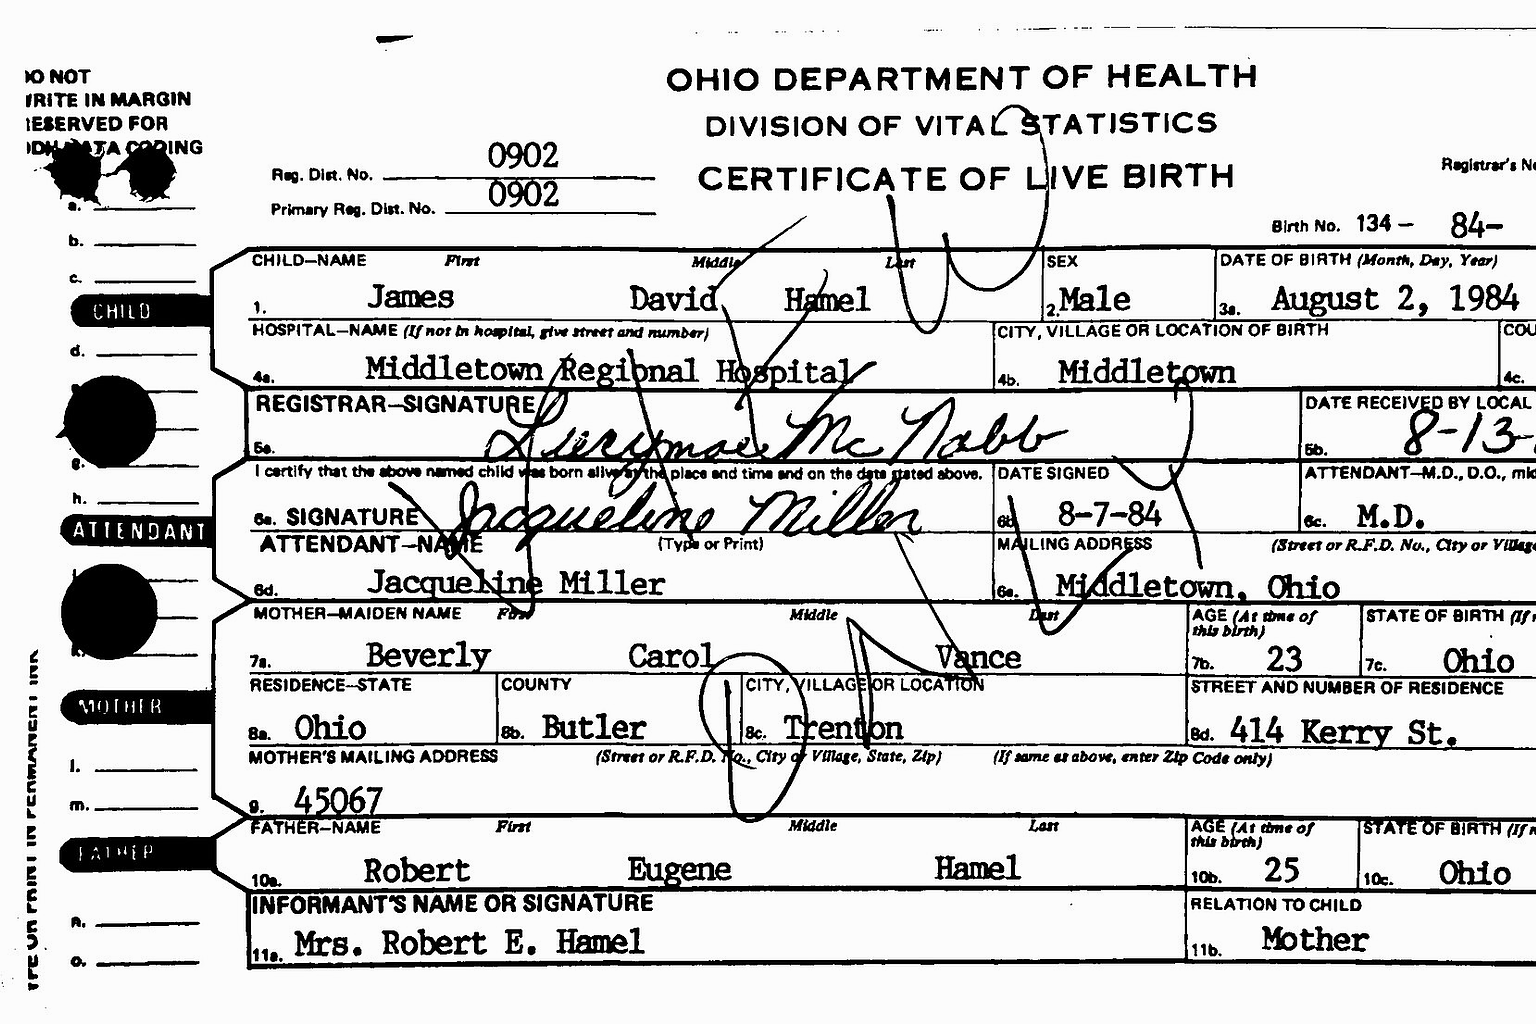 OHIO DEPARTMENT OF HEALTH
DIVISION OF VITAL STATISTICS
CERTIFICATE OF LIVE BIRTH
DO NOT
WRITE IN MARGIN
RESERVED FOR
ODH DATA CODING
Reg. Dist. No. 0902
Primary Reg. Dist. No. 0902
Registrar's No
Birth No. 134 – 84–
a.
b.
c.
CHILD
d.
CHILD–NAME First Middle Last
1. James David Hamel
SEX
2. Male
DATE OF BIRTH (Month, Day, Year)
3a. August 2, 1984
HOSPITAL–NAME (If not in hospital, give street and number)
4a. Middletown Regional Hospital
CITY, VILLAGE OR LOCATION OF BIRTH
4b. Middletown
COU
4c.
REGISTRAR–SIGNATURE
5a. Lucymae McNabb
DATE RECEIVED BY LOCAL
5b. 8-13-
g.
h.
ATTENDANT
I certify that the above named child was born alive at the place and time and on the date stated above.
6a. SIGNATURE Jacqueline Miller
DATE SIGNED
6b. 8-7-84
ATTENDANT–M.D., D.O., mid
6c. M.D.
ATTENDANT–NAME (Type or Print)
6d. Jacqueline Miller
MAILING ADDRESS (Street or R.F.D. No., City or Village
6e. Middletown, Ohio
MOTHER
MOTHER–MAIDEN NAME First Middle Last
7a. Beverly Carol Vance
AGE (At time of this birth)
7b. 23
STATE OF BIRTH (If n
7c. Ohio
RESIDENCE–STATE
8a. Ohio
COUNTY
8b. Butler
CITY, VILLAGE OR LOCATION
8c. Trenton
STREET AND NUMBER OF RESIDENCE
8d. 414 Kerry St.
l.
m.
MOTHER'S MAILING ADDRESS (Street or R.F.D. No., City or Village, State, Zip) (If same as above, enter Zip Code only)
9. 45067
FATHER
FATHER–NAME First Middle Last
10a. Robert Eugene Hamel
AGE (At time of this birth)
10b. 25
STATE OF BIRTH (If n
10c. Ohio
n.
o.
INFORMANT'S NAME OR SIGNATURE
11a. Mrs. Robert E. Hamel
RELATION TO CHILD
11b. Mother
TYPE OR PRINT IN PERMANENT INK